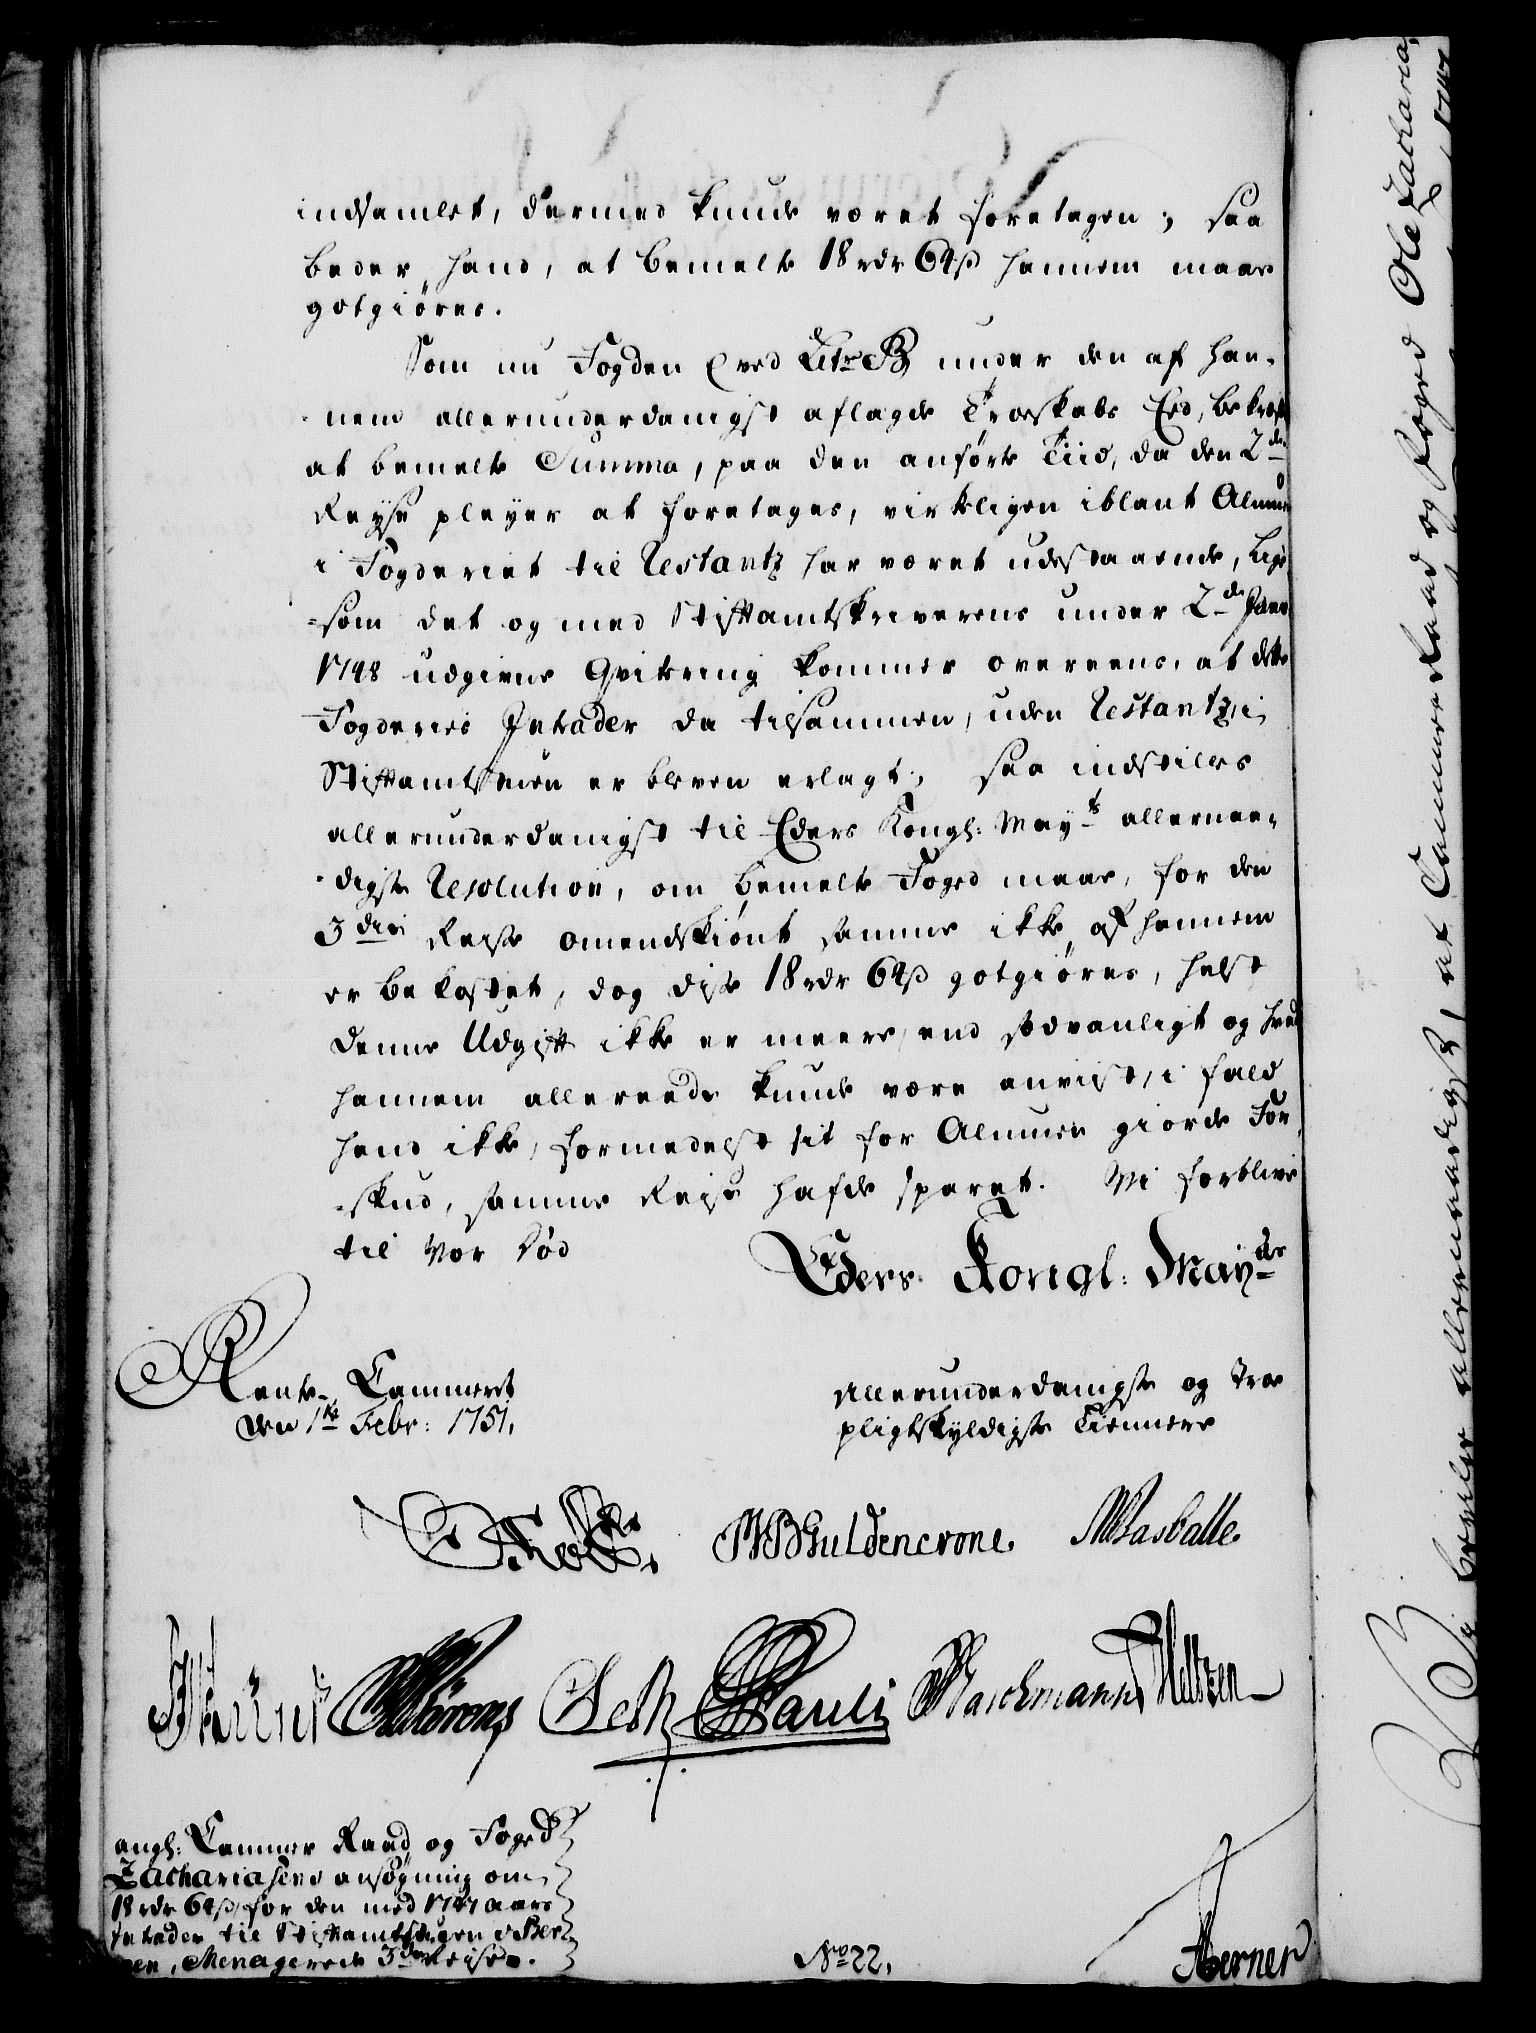 indsamlet, dermed kunde været foretagen; saa
beder hand, at bemelte 18 rdr 64 ß hannem maae
gotgiøres.
Som nu Fogden ved Litr B under den af han-
nem allerunderdanigst aflagde Troeskabs Eed, bekræft
at bemelte Summa, paa den anførte Tiid, da den 2de
Reyse pleyer at foretages, virkeligen iblant Almue
i Fogderiet til Restantz har været udestaaende, lige
=som det og med Stiftamtskriverens under 2de Janu
1748 udgivne Qvitering kommer overeens, at dette
Fogderies Intrader da tilsammen, uden Restantz, i
Stiftamtstuen er bleven erlagt; saa indstilles
allerunderdanigst til Eders Kongl: May:ts allernaa-
digste Resolution, om bemelte Foged maae, for den
3die Reise omendskiønt samme ikke af hannem
er bekostet, dog disse 18 rdr 64 ß gotgiøres, helst
denne Udgift ikke er meere end sædvanligt og hvad
hannem allereede kunde være anvist, i fald
hand ikke, formedelst sit for Almuen giorde For
-skud, samme Reise hafde sparet. Vi forblive
til vor Død
Eders Kongl: May:ts
Rente-Cammeret
den 1te Febr: 1751.
Allerunderdanigste og Troe
pligtskyldigste Tiennere
Guldencrone. Rasballe.
Pauli
angl: Cammer Raad og Foged
Zachariasens ansøgning om
18 rdr 64 ß, for den med 1747 aars
Intrader til Stiftamtstuen i Ber
gen, Menagerede 3die Reise.
No 22.
Berner
Vi befale allernaadigst, at Cammer Raad og Foged Ole Zacharia